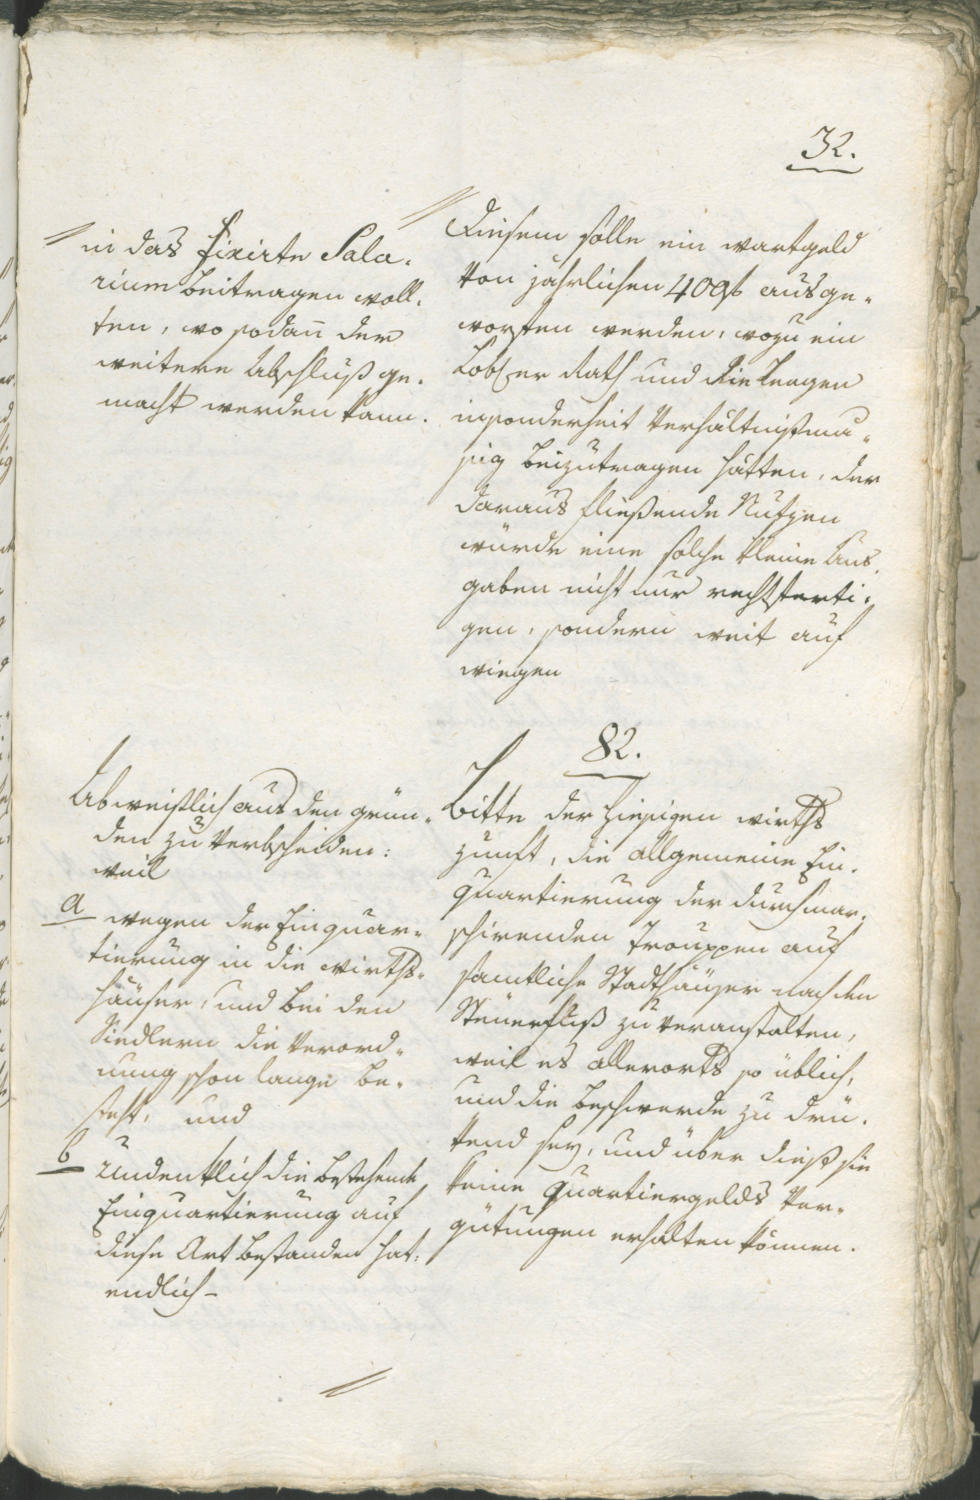 32.
in das fixirte Sala-
rium beitragen woll-
ten, wo sodan̄ der
weitere Abschluß ge-
macht werden kann.
Diesem solle ein wartgeld
von jährlichen 40 f ausge-
worfen werden, wozu ein
Löbl er Rath und die
insonderheit verhältnißmä-
ßig beizutragen hätten, der
daraus fließende Nutzen
würde eine solche kleine Aus-
gaben nicht nur rechtferti-
gen, sondern weit auf
wiegen
Abweißlich aus den grün-
den zu verbscheiden:
weil
a wegen der Einquar-
tierung in die wirths-
häuser, und bei den
Siedlern die Verord-
nung schon lange be-
steht, und
b undenklich die bestehende
Einquartierung auf
diese Art bestanden hat.
endlich -
82.
Bitte der hiesigen wirths
zunft, die allgemeine Ein-
quartierung der durchmar-
schirenden Trouppen auf
samtliche Stadthäuser nach den
Steuerfuß zu veranstalten,
weil es allerorts so üblich,
und die beschwerde zu drü-
kend sey, und über dieß sie
keine Quartiergelds Ver-
gütungen erhalten können.